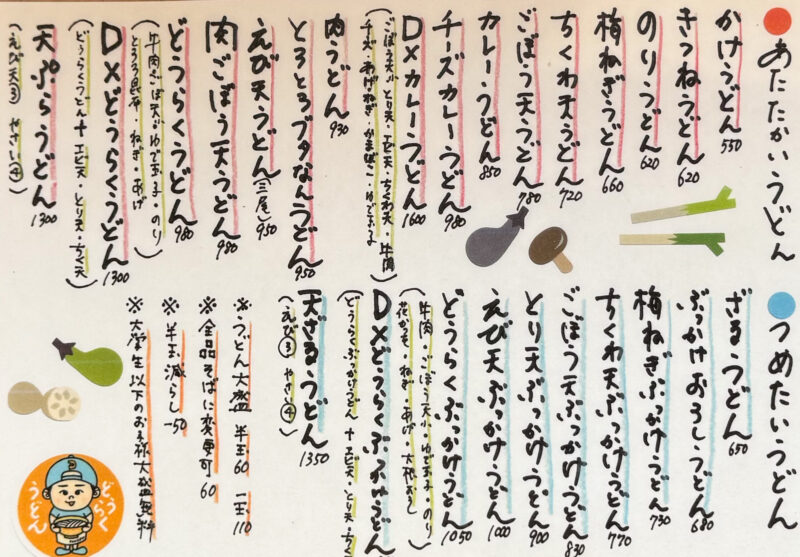 あたたかいうどん
かけうどん 550
きつねうどん 620
のりうどん 620
梅ねぎうどん 660
ちくわ天うどん 720
ごぼう天うどん 780
カレーうどん 850
チーズカレーうどん 980
DXカレーうどん 1600
(ごぼう天小・とり天・エビ天・ちくわ天・牛肉
チーズ・あげ・ねぎ・かまぼこ・ゆで玉子
肉うどん 930
とろとろブタなんうどん 950
えび天うどん(三尾) 950
肉ごぼう天うどん 980
どうらくうどん 980
(牛肉・ごぼ天小・ゆで玉子・のり
とろろ昆布・ねぎ・あげ
DXどうらくうどん 1300
(どうらくうどん+エビ天・とり天・ちく天)
天ぷらうどん 1300
(えび天③ やさい④)
つめたいうどん
ざるうどん 650
ぶっかけおろしうどん 680
梅ねぎぶっかけうどん 730
ちくわ天ぶっかけうどん 770
ごぼう天ぶっかけうどん 830
とり天ぶっかけうどん 900
えび天ぶっかけうどん 1000
どうらくぶっかけうどん 1050
(牛肉・ごぼう天小・ゆで玉子・のり
花かつお・ねぎ・あげ・大根おろし
DXどうらくぶっかけうどん
(どうらくぶっかけうどん+エビ天・とり天・ちく
天ざるうどん 1350
(えび③ やさい④)
※うどん大盛 半玉60 一玉110
※全品そばに変更可 60
※半玉減らし -50
※大学生以下のお子様大盛無料
どうらく
うどん